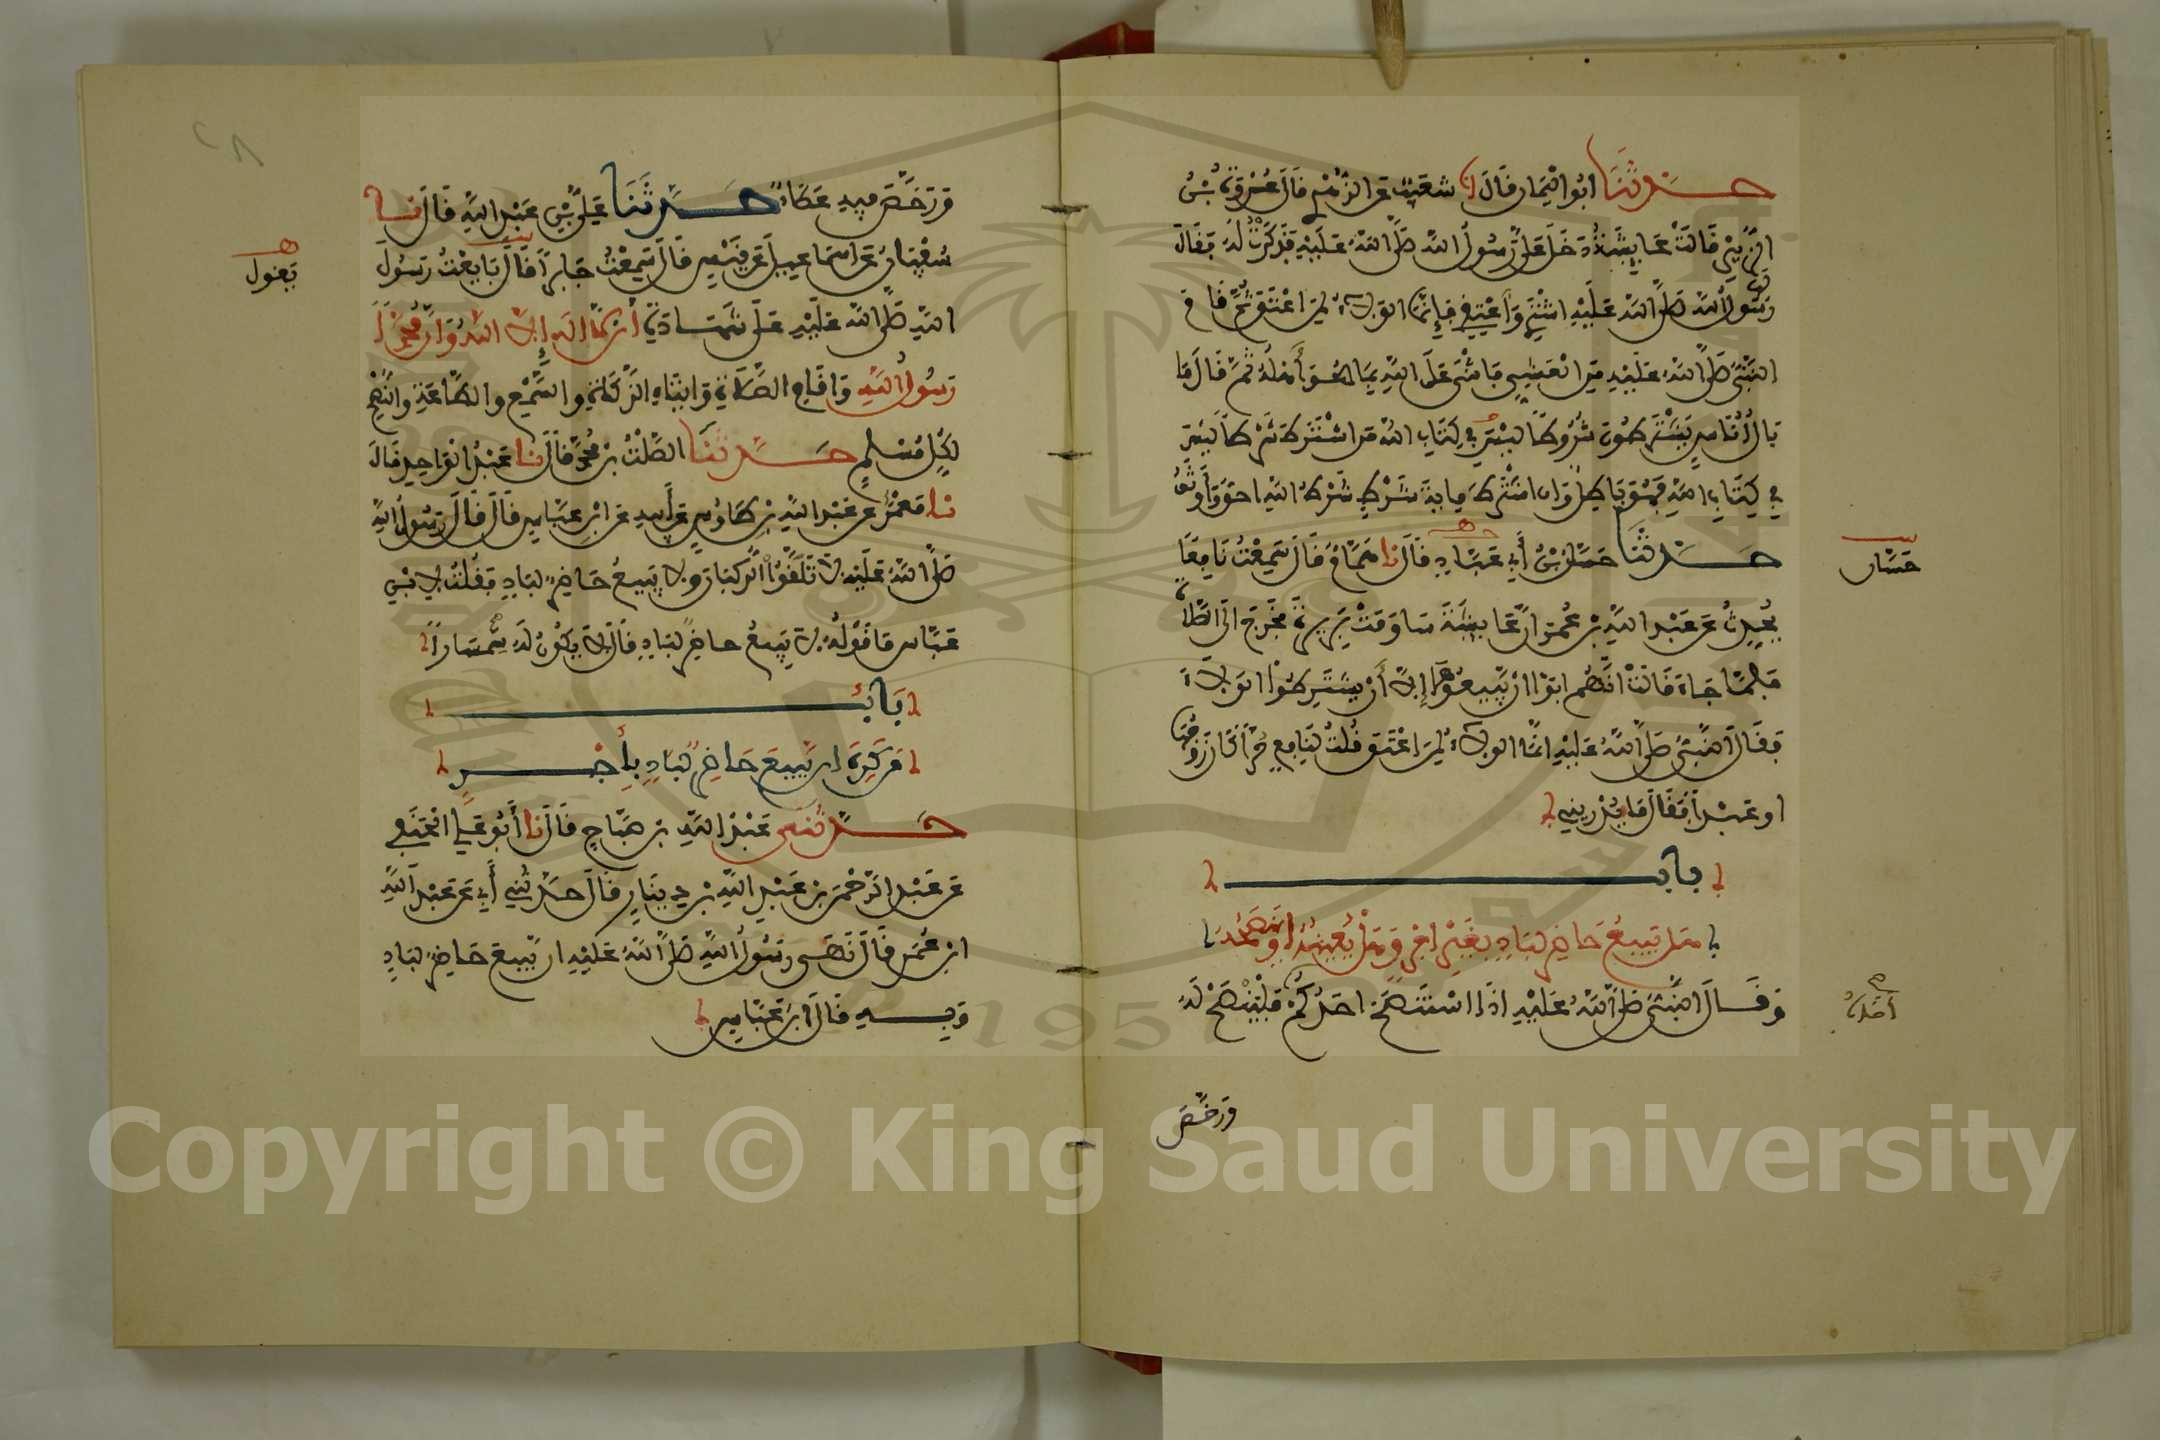 حدثنا ابو اليمان قال انا شعيب عن الزهري قال عروة بن
الزبير قالت عايشة دخل علي رسول الله صلى الله عليه فذكرت له فقال
رسول الله صلى الله عليه اشتري واعتقي فإنما الولاء لمن اعتق ثم قام
النبي صلى الله عليه من العشي فاثنى على الله بما هو أهله ثم قال ما
بال أناس يشترطون شروطا ليس في كتاب الله من اشترط شرطا ليس
في كتاب الله فهو باطل وان اشترط ماية شرط شرط الله احق وأوثق
حدثنا حسان بن أبي عباد قال نا همام قال سمعت نافعا
يحدث عن عبد الله بن عمر ان عايشة ساومت بريرة فخرج الى الصلاة
فلما جاء قالت انهم ابوا ان يبيعوها إلا أن يشترطوا الولاء
فقال النبي صلى الله عليه انما الولاء لمن اعتق قلت لنافع حرا كان زوجها
او عبدا فقال ما يدريني
باب
هل يبيع حاضر لباد بغير اجر وهل يعينه او ينصحه
وقال النبي صلى الله عليه اذا استنصح احدكم فلينصح له
ورخص
حسان
ورخص فيه عطاء حدثنا علي بن عبد الله قال نا
سفيان عن اسماعيل عن قيس قال سمعت جابرا قال بايعت رسول
الله صلى الله عليه على شهادة أن لا اله إلا الله وان محمدا
رسول الله واقام الصلاة وايتاء الزكاة والسمع والطاعة والنصح
لكل مسلم حدثنا الصلت بن محمد قال نا عبد الواحد قال
نا معمر عن عبد الله بن طاوس عن أبيه عن ابن عباس قال قال رسول الله
صلى الله عليه لا تلقوا الركبان ولا يبيع حاضر لباد فقلت لابن
عباس ما قوله لا يبيع حاضر لباد قال لا يكون له سمسارا
باب
من كره ان يبيع حاضر لباد بأجر
حدثني عبد الله بن صباح قال نا أبو علي الحنفي
عن عبد الرحمن بن عبد الله بن دينار قال حدثني أبي عن عبد الله
ابن عمر قال نهى رسول الله صلى الله عليه ان يبيع حاضر لباد
وبه قال ابن عباس
يقول
٢٨
Copyright © King Saud University
1957